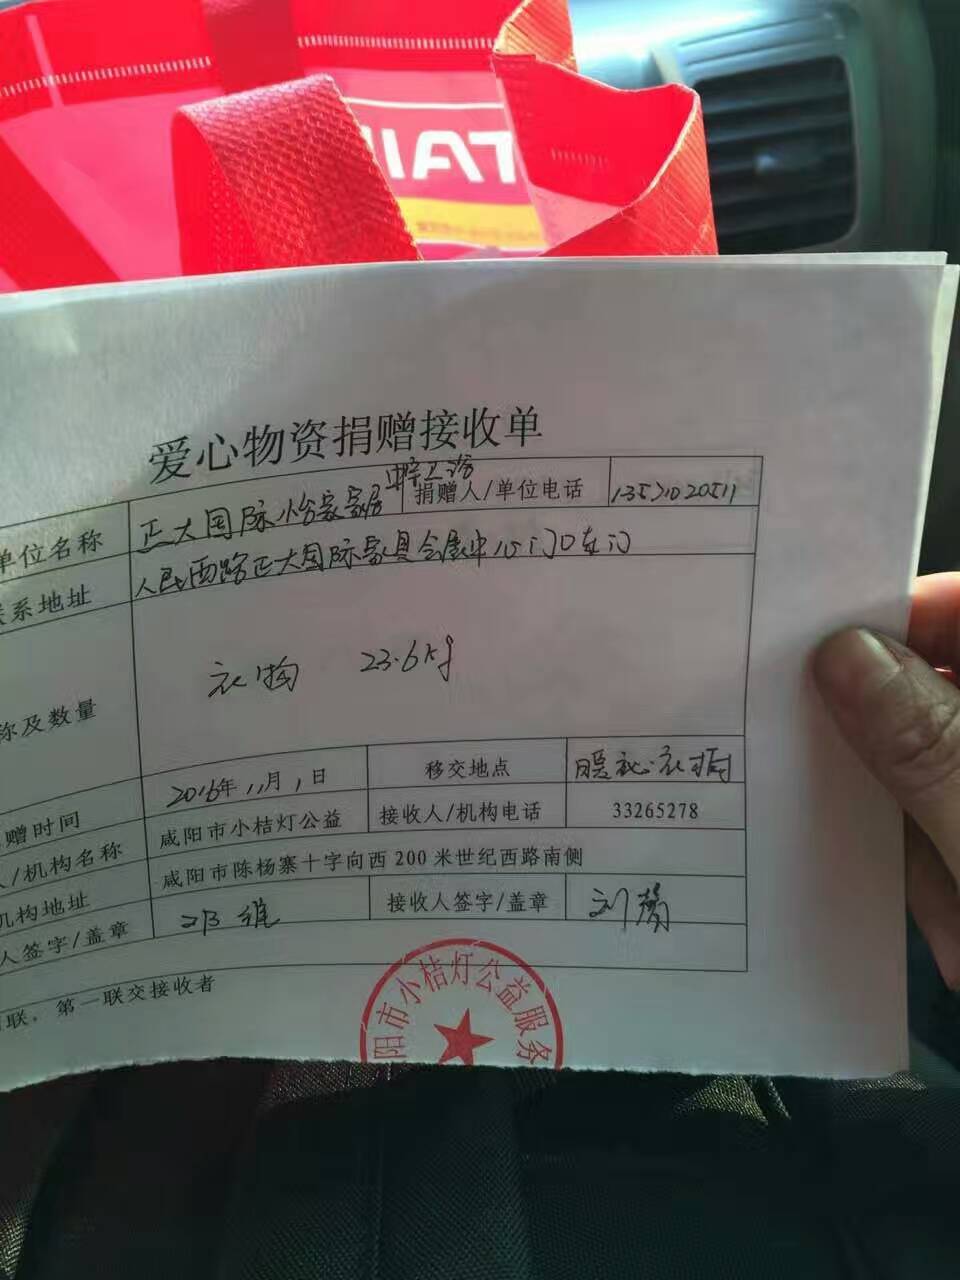 TAI
爱心物资捐赠接收单
单位名称 正大国际怡家家居 捐赠人/单位电话 13571020511
系地址 人民西路正大国际家具会展中心门口东门
称及数量 衣物 23.6kg
赠时间 2016年11月1日 移交地点
人/机构名称 咸阳市小桔灯公益 接收人/机构电话 33265278
机构地址 咸阳市陈杨寨十字向西200米世纪西路南侧
人签字/盖章 接收人签字/盖章
联，第一联交接收者
阳市小桔灯公益服务